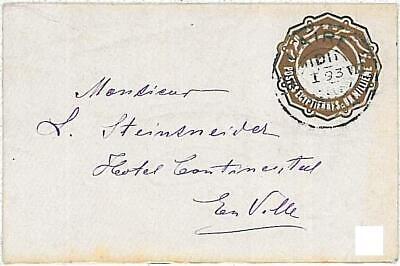 POSTES EGYPTIENNES UN MILLIEME
Monsieur
L. Steinsneider
Hotel Continental
En Ville